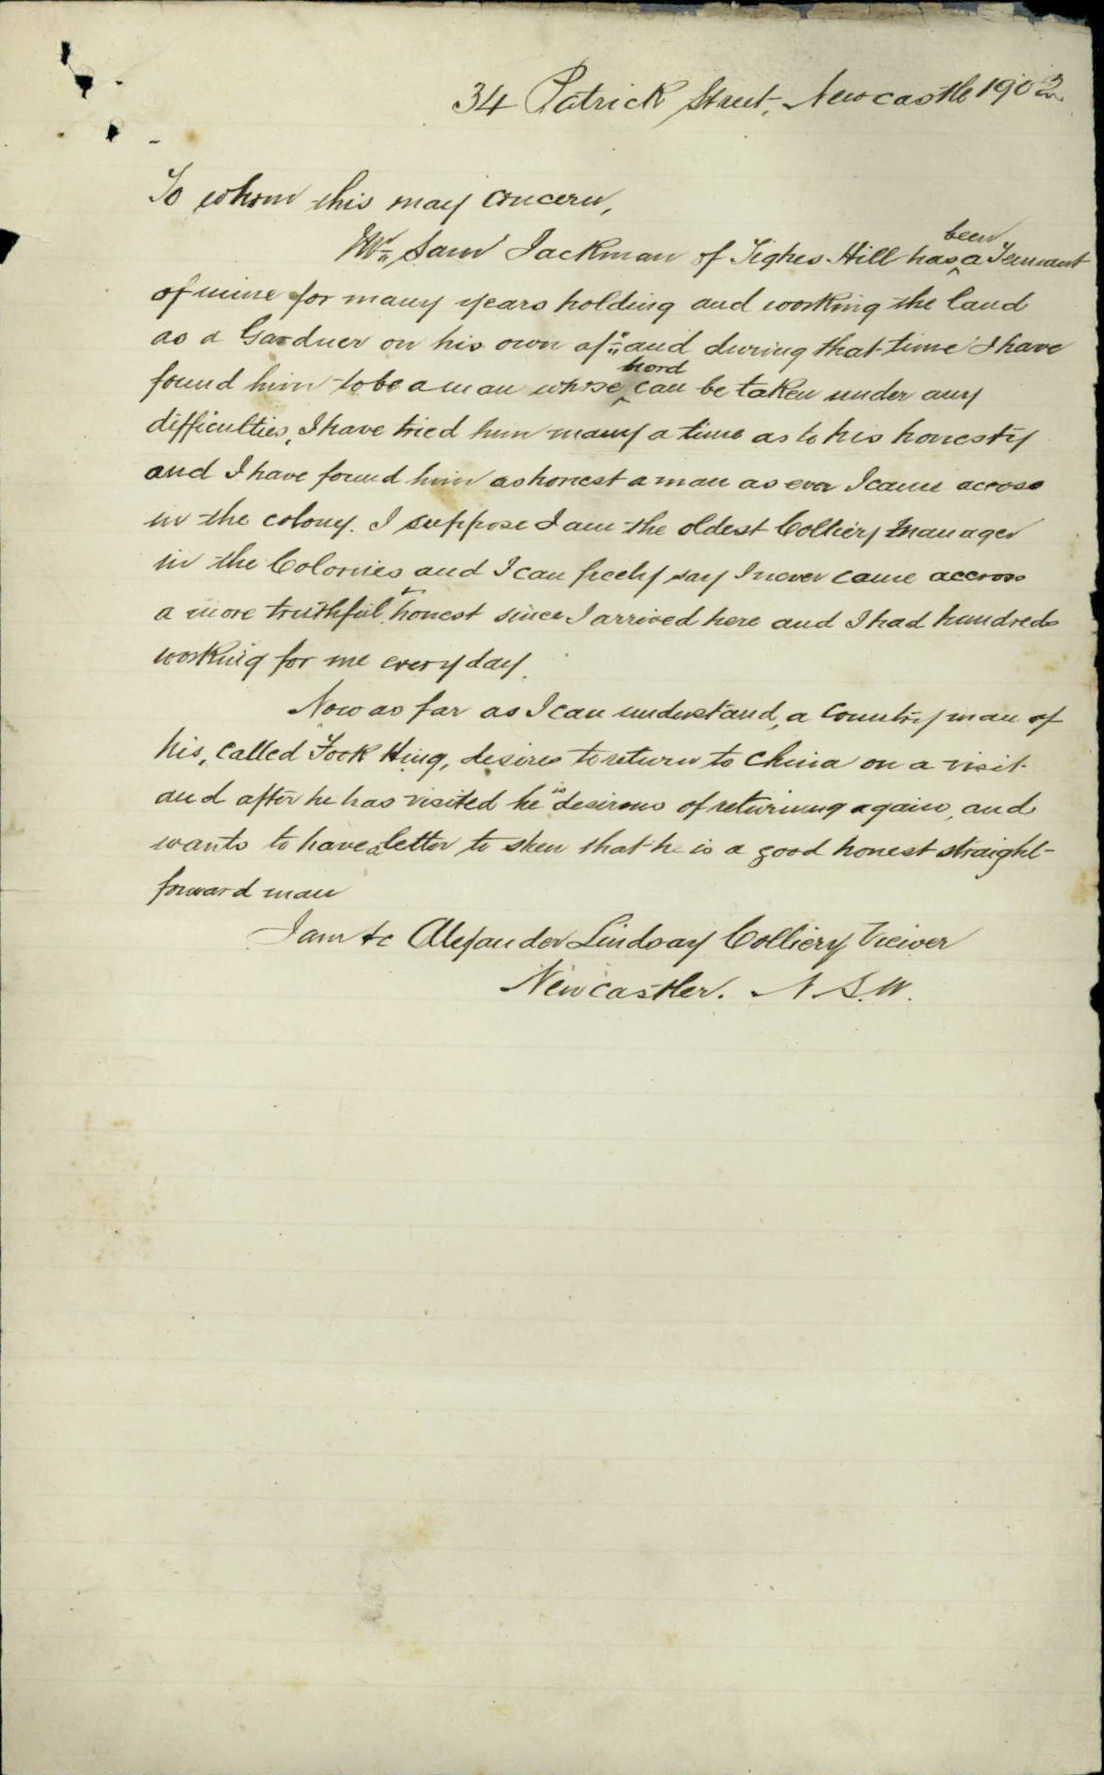 34 Patrick Street, Newcastle 1902
To whom this may concern,
Mr Sam Jackman of Tighes Hill has been a Tennant
of mine for many years holding and working the land
as a Gardner on his own a/c and during that time I have
found him to be a man whose word can be taken under any
difficulties, I have tried him many a time as to his honesty
and I have found him as honest a man as ever I came across
in the colony. I suppose I am the oldest Colliery Manager
in the Colonies and I can freely say I never came accross
a more truthful + honest since I arrived here and I had hundreds
working for me every day.
Now as far as I can understand, a Countryman of
his, called Fock Hing, desires to return to China on a visit
and after he has visited he is desirous of returning again, and
wants to have a letter to shew that he is a good honest straight-
forward man
I am &c Alexander Lindsay Colliery Viewer
Newcastle. N.S.W.